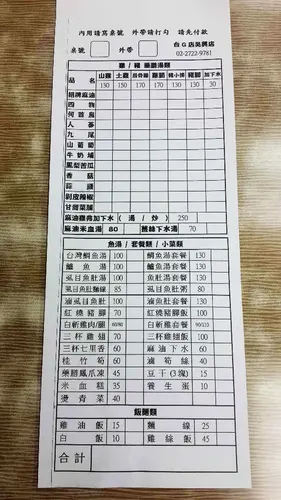 內用請寫桌號 外帶請打勾 請先付款
桌號 外帶 白G店吳興店
02-2722-9781
雞 / 豬 藥膳湯類
品名 山雞 土雞 烏骨雞 雞腳 豬小排 豬腳 加下水
150 150 170 150 130 130 30
招牌麻油
四物
何首烏
人蔘
九尾
山葡萄
牛奶埔
鳳梨苦瓜
香菇
蒜頭
剝皮辣椒
甘蔗菜脯
麻油雞佛加下水 ( 湯 / 炒 ) 250
麻油米血湯 80 薑絲下水湯 70
魚湯 / 套餐類 / 小菜類
台灣鯛魚湯 100 鯛魚湯套餐 130
鱸魚湯 100 鱸魚湯套餐 130
虱目魚肚湯 100 魚肚湯套餐 130
虱目魚肚麵線 85 虱目魚肚粥 80
滷虱目魚肚 100 滷魚肚套餐 130
紅燒豬腳 100 紅燒豬腳飯 130
白斬雞肉/腿 60/80 白斬雞套餐 90/110
三杯雞翅 70 三杯雞翅飯 100
三杯七里香 60 麻油下水 60
桂竹筍 60 滷筍絲 40
藥膳鳳爪凍 45 豆干(3塊) 15
米血糕 35 養生蛋 10
燙青菜 40
飯麵類
雞油飯 15 麵線 25
白飯 10 雞絲飯 45
合計